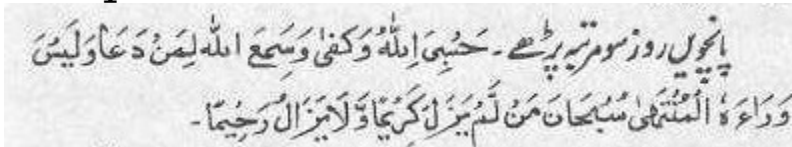 پانچویں روز سو مرتبہ پڑھے۔ حَسْبِیَ اللّٰهُ وَکَفٰی وَسَمِعَ اللّٰه لِمَنْ دَعَا وَلَیْسَ
وَرَاءَهٗ الْمُنْتَهٰی سُبْحَانَ مَنْ لَّمْ یَزَلْ کَرِیْمًا وَّلَا یَزَالُ رَحِیْمًا۔